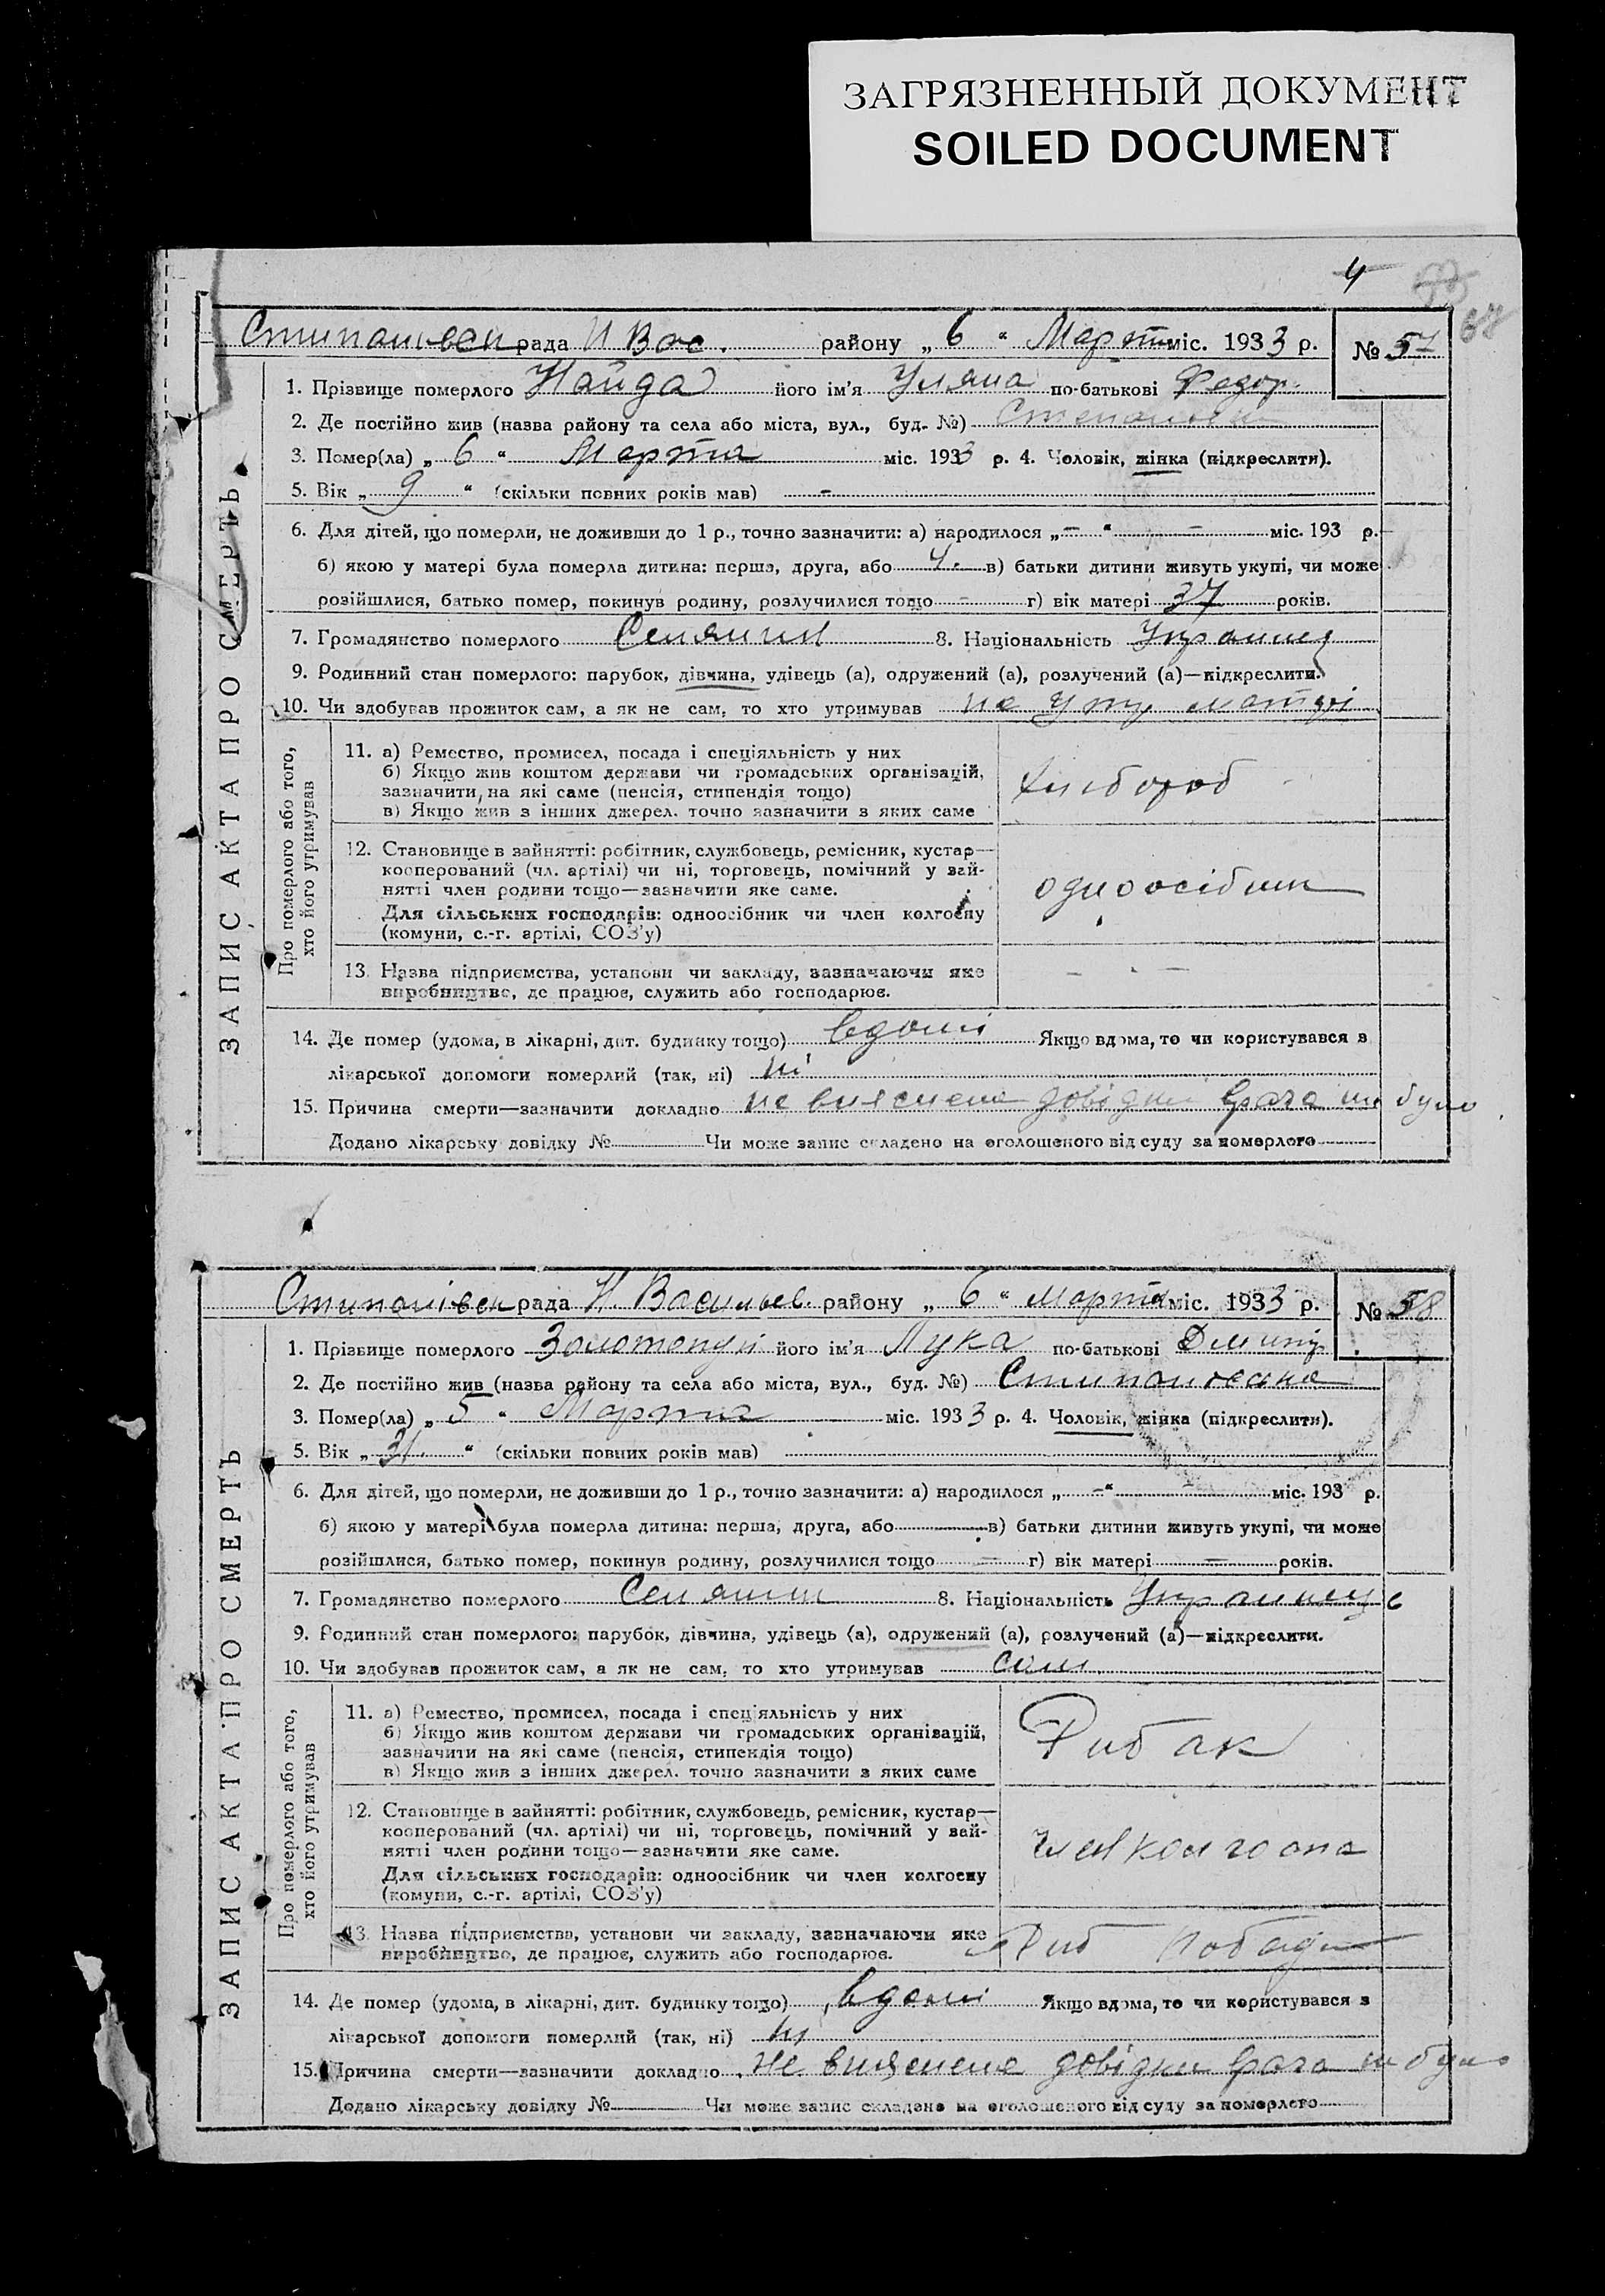 ЗАГРЯЗНЕННЫЙ ДОКУМЕНТ
SOILED DOCUMENT
4
рада Н Вас. району „ 6 “ Марта міс. 1933 р. № 57
1. Прізвище померлого Найда його ім'я Уляна по-батькові Федор.
2. Де постійно жив (назва району та села або міста, вул., буд. №)
3. Помер(ла) „ 6 “ Марта міс. 1933 р. 4. Чоловік, жінка (підкреслити).
5. Вік „ 9 “ (скільки повних років мав) –
6. Для дітей, що померли, не доживши до 1 р., точно зазначити: а) народилося „ – “ – міс. 193 р.
б) якою у матері була померла дитина: перша, друга, або 4. в) батьки дитини живуть укупі, чи може
розійшлися, батько помер, покинув родину, розлучилися тощо - г) вік матері 37 років.
7. Громадянство померлого Селянин 8. Національність
9. Родинний стан померлого: парубок, дівчина, удівець (а), одружений (а), розлучений (а)—підкреслити.
10. Чи здобував прожиток сам, а як не сам, то хто утримував на утр матері
ЗАПИС АКТА ПРО СМЕРТЬ
Про померлого або того,
хто його утримував
11. а) Ремество, промисел, посада і спеціяльність у них
б) Якщо жив коштом держави чи громадських організацій,
зазначити, на які саме (пенсія, стипендія тощо)
в) Якщо жив з інших джерел. точно зазначити з яких саме
хлібороб
12. Становище в зайнятті: робітник, службовець, ремісник, кустар—
кооперований (чл. артілі) чи ні, торговець, помічний у зай-
нятті член родини тощо—зазначити яке саме.
Для сільських господарів: одноосібник чи член колгоспу
(комуни, с.-г. артілі, СОЗ'у)
одноосібник
13. Назва підприємства, установи чи закладу, зазначаючи яке
виробництво, де працює, служить або господарює.
– –
14. Де помер (удома, в лікарні, дит. будинку тощо) вдомі Якщо вдома, то чи користувався з
лікарської допомоги померлий (так, ні) ні
15. Причина смерти—зазначити докладно не вияснена довідки врача ни було
Додано лікарську довідку № Чи може запис складено на оголошеного від суду за померлого
рада Н. Васильев. району „ 6 “ Марта міс. 1933 р. № 58
1. Прізвище померлого Золотопуп його ім'я Лука по-батькові Дмитр
2. Де постійно жив (назва району та села або міста, вул., буд. №)
3. Помер(ла) „ 5 “ Марта міс. 1933 р. 4. Чоловік, жінка (підкреслити).
5. Вік „ 31. “ (скільки повних років мав)
6. Для дітей, що померли, не доживши до 1 р., точно зазначити: а) народилося „ – “ – міс. 193 р.
б) якою у матері була померла дитина: перша, друга, або в) батьки дитини живуть укупі, чи може
розійшлися, батько помер, покинув родину, розлучилися тощо – г) вік матері – років.
7. Громадянство померлого Селянин 8. Національність
9. Родинний стан померлого: парубок, дівчина, удівець (а), одружений (а), розлучений (а)—підкреслити.
10. Чи здобував прожиток сам, а як не сам, то хто утримував сам
ЗАПИС АКТА ПРО СМЕРТЬ
Про померлого або того,
хто його утримував
11. а) Ремество, промисел, посада і спеціяльність у них
б) Якщо жив коштом держави чи громадських організацій,
зазначити на які саме (пенсія, стипендія тощо)
в) Якщо жив з інших джерел. точно зазначити з яких саме
Рибак
12. Становище в зайнятті: робітник, службовець, ремісник, кустар—
кооперований (чл. артілі) чи ні, торговець, помічний у зай-
нятті член родини тощо—зазначити яке саме.
Для сільських господарів: одноосібник чи член колгоспу
(комуни, с.-г. артілі, СОЗ'у)
член колгоспа
13. Назва підприємства, установи чи закладу, зазначаючи яке
виробництво, де працює, служить або господарює.
Риб
14. Де помер (удома, в лікарні, дит. будинку тощо) вдомі Якщо вдома, то чи користувався з
лікарської допомоги померлий (так, ні) ні
15. Причина смерти—зазначити докладно не вияснена довідки врача ни було
Додано лікарську довідку № Чи може запис складено на оголошеного від суду за померлого